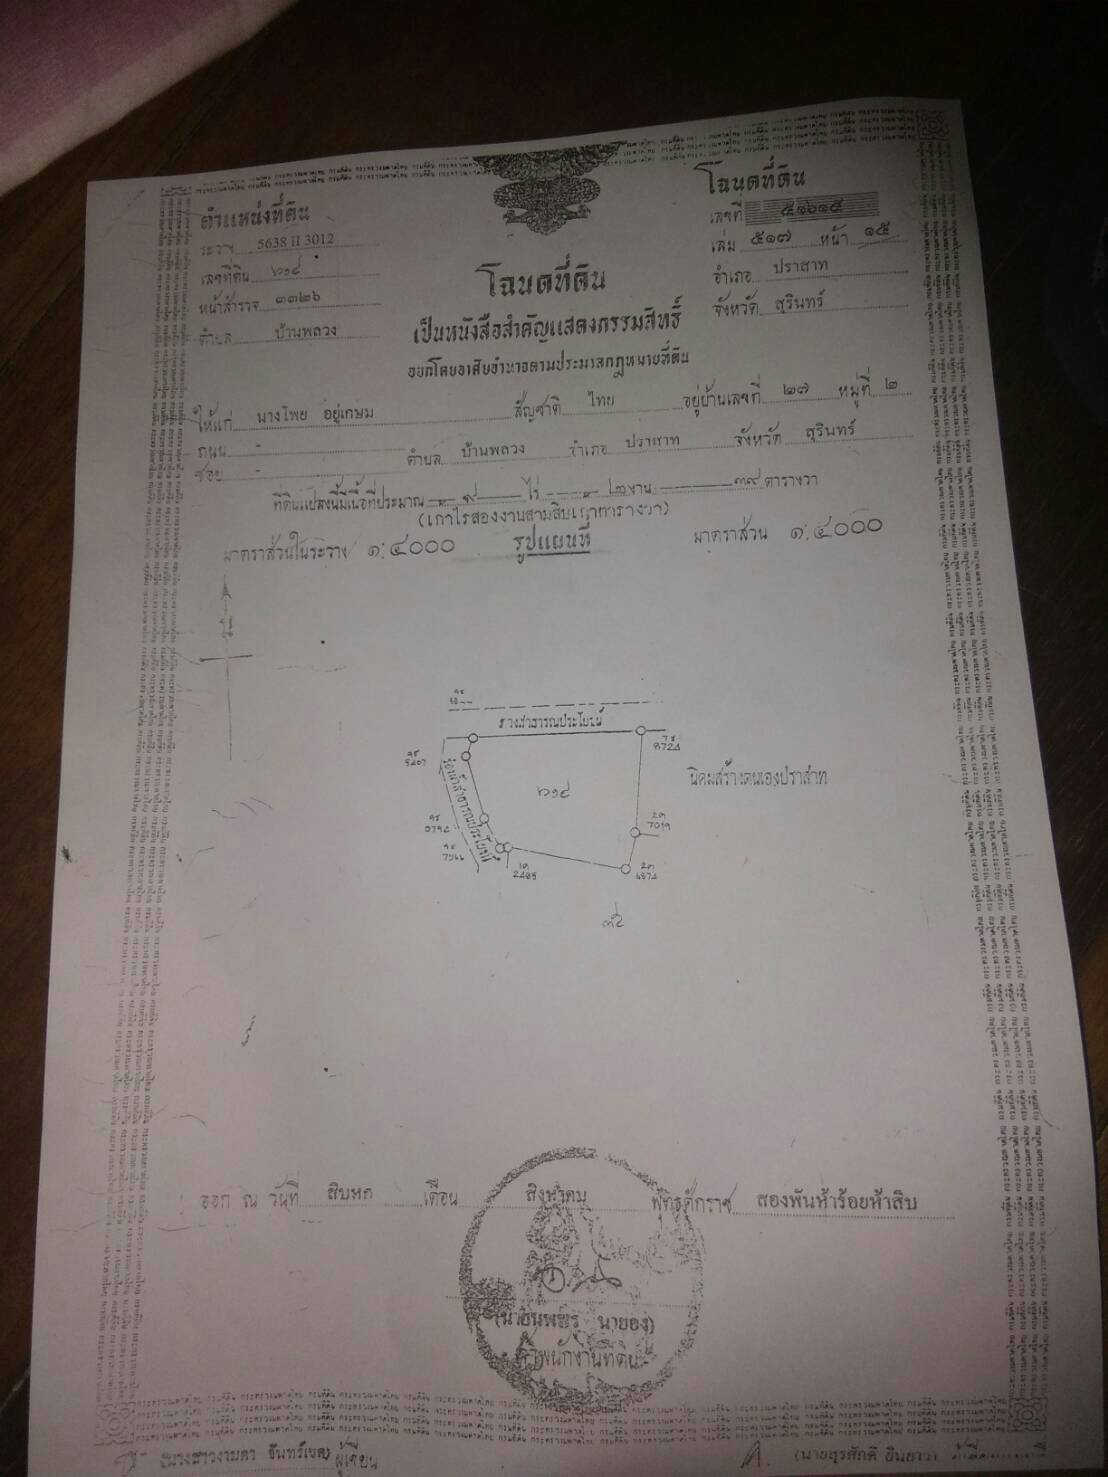 ตำแหน่งที่ดิน
ระวาง 5638 II 3012
เลขที่ดิน
หน้าสำรวจ ๓๓๒๖
ตำบล บ้านพลวง
โฉนดที่ดิน
เลขที่ ๕๑๖๑๕
เล่ม ๕๑๗ หน้า ๑๕
อำเภอ ปราสาท
จังหวัด สุรินทร์
โฉนดที่ดิน
เป็นหนังสือสำคัญแสดงกรรมสิทธิ์
ออกโดยอาศัยอำนาจตามประมวลกฎหมายที่ดิน
ให้แก่ นางโพย อยู่เกษม สัญชาติ ไทย อยู่บ้านเลขที่ ๒๗ หมู่ที่ ๒
ถนน -
ซอย - ตำบล บ้านพลวง อำเภอ ปราสาท จังหวัด สุรินทร์
ที่ดินแปลงนี้มีเนื้อที่ประมาณ ๙ ไร่ ๒ งาน ๓๙ ตารางวา
(เก้าไร่สองงานสามสิบเก้าตารางวา)
มาตราส่วนในระวาง ๑:๔๐๐๐ รูปแผนที่ มาตราส่วน ๑:๔๐๐๐
ทางสาธารณประโยชน์
ร่องน้ำสาธารณประโยชน์
นิคมสร้างตนเองปราสาท
8724
7019
4874
2485
ออก ณ วันที่ สิบหก เดือน สิงหาคม พุทธศักราช สองพันห้าร้อยห้าสิบ
เจ้าพนักงานที่ดิน
ผู้เขียน